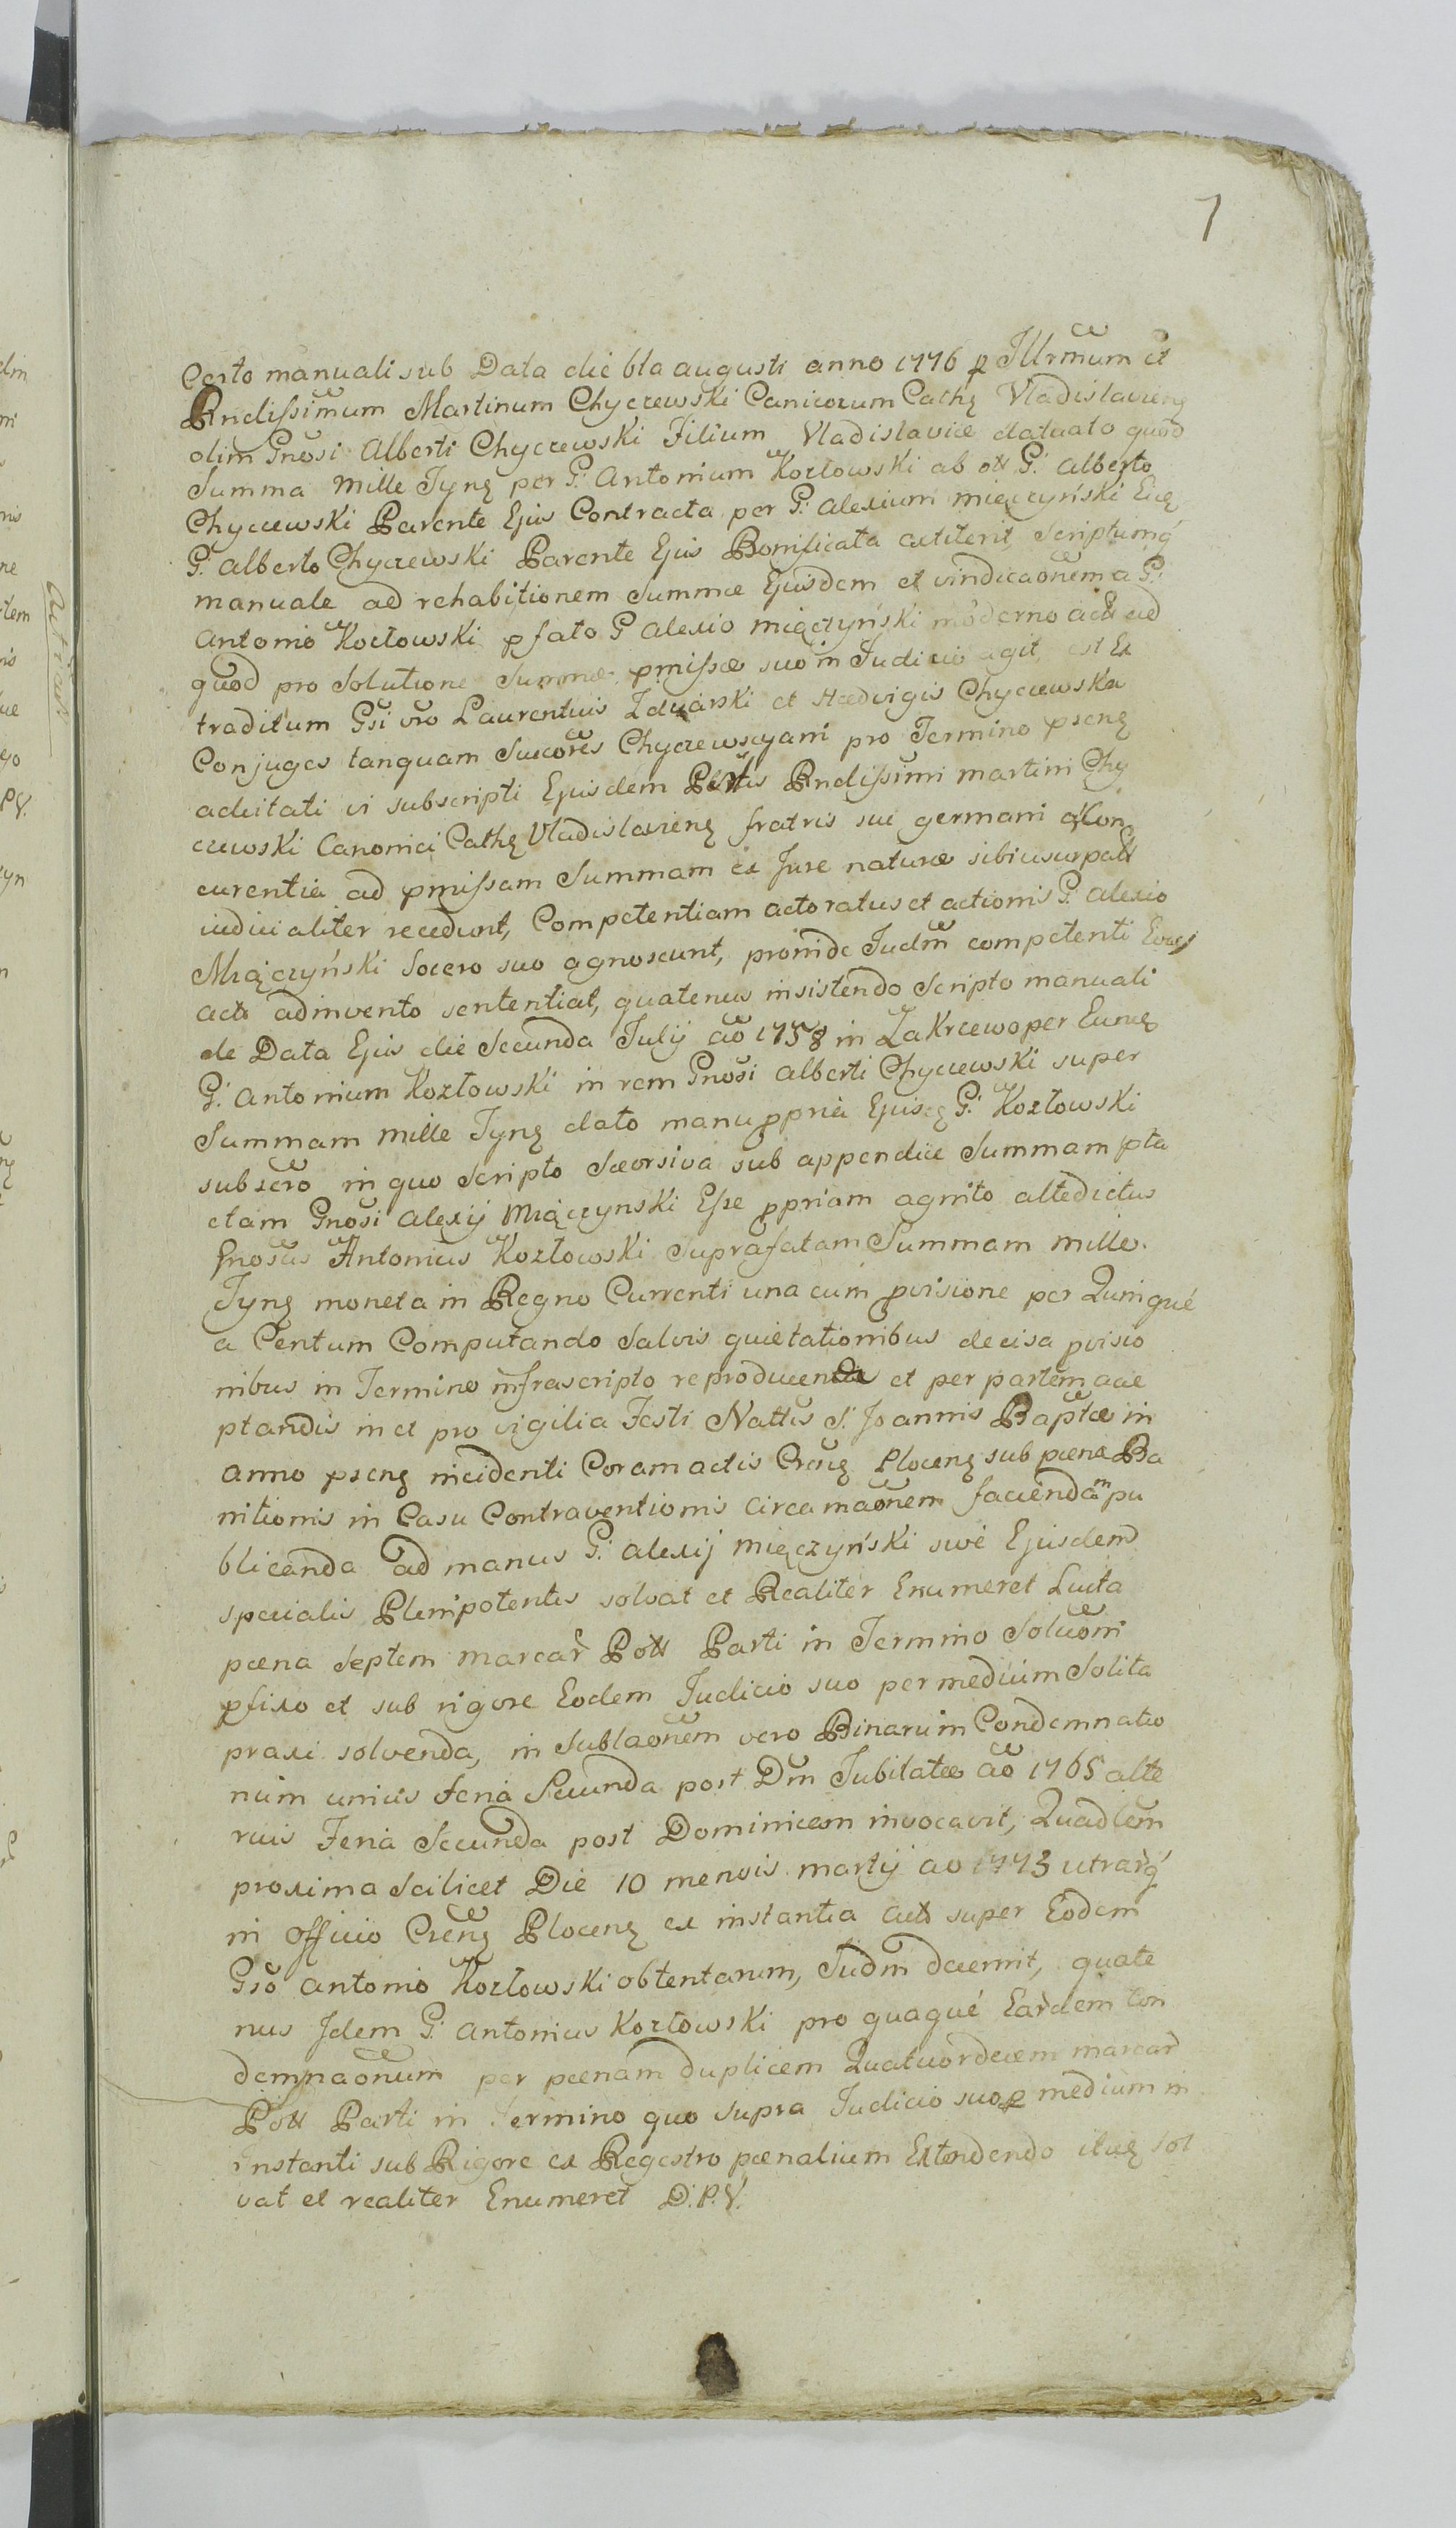 7
Certo manuali sub Data die 6ta augusti anno 1776 p Illrmum et
Rndissimum Martinum Chyczewski Canicorum Cathę Vladislavienę
olim Gnosi Alberti Chyczewski Filium Vladislavice datuato quod
Summa mille Tynę per G: Antonium Kozłowski ab ott G: Alberto
Chyczewski Parente Ejus Contracta per G: alexium Miączyński
G: Alberto Chyczewski Parente Ejus Bonificata extiterit, Scriptumq
manuale ad rehabitionem Summæ Ejusdem et vindicaonem a G:
Antonio Kozłowski pfato G Alexio Miączyński moderno
quod pro Solutione Summæ pmissæ suo in Judicio agit, est Ex
traditum Gsi vro Laurentius Zduarski et Hædvigis Chyczewska
Conjuges tanquam Succores Chyczewscyani pro Termino psenę
adcitati vi subscripti Ejusdem Rndissimi Martini Chy
czewski Canonici Cathę Vladislavienę fratris sui germani a Con
curentia ad pmissam Summam ex Jure naturæ sibi usurpatt
iudicialiter recedunt, Competentiam actoratus et actionis G: Alexio
Miączyński Socero suo agnoscunt, proinde Judm competenti
acto adinvento sententiat, quatenus insistendo Scripto manuali
de Data Ejus die Secunda Julij ao 1758 in Zakrzewo per Eundę
G: Antonium Kozłowski in rem Gnosi Alberti Chyczewski super
Summam mille Tynę dato manu ppria Ejusę G: Kozłowski
subscro in quo Scripto Seorsiva sub appendice Summam pta
ctam Gnosi Alexij Miączynski Esse ppriam agnito altedictus
Gnosus Antonius Kozłowski Suprafatam Summam mille
Tynę moneta in Regno Currenti una cum pvisione per Quinque
a Centum Computando Salvis quietationibus decisa pvisio
nibus in Termino infrascripto reproducenda et per partem acce
ptandis in et pro vigilia Festi Nattis S: Joannis Baptæ in
anno psenę incidenti Coram actis Crenę Plocenę sub pæna Ba
nitionis in Casu Contraventionis circa maonem faciendam pu
blicanda ad manus G: Alexij Miączyński sive Ejusdem
specialis Plenipotentis solvat et Realiter Enumeret Lucta
pæna Septem marcar Pott Parti in Termino Solvoni
pfixo et sub rigore Eodem Judicio suo per medium Solita
praxi solvenda, in Sublaonem vero Binarum Condemnatio
num unius Feria Secunda post Dm Jubilatæ ao 1765 alte
rius Feria Secunda post Dominicam invocavit, Quadlem
proxima Scilicet Die 10 mensis martij ao 1773 utrarq
in Officio Crenę Plocenę ex instantia act super Eodem
Gso Antonio Kozłowski obtentarum, Judm decernit, quate
nus Idem G: Antonius Kozłowski pro quaque Eardem Con
demnaonum per pænam duplicem Quatuordecem marcar
Pott Parti in Termino quo supra Judicio suo p medium in
instanti sub Rigore ex Regestro pænalium Extendendo sol
vat et realiter Enumeret D.P.V.